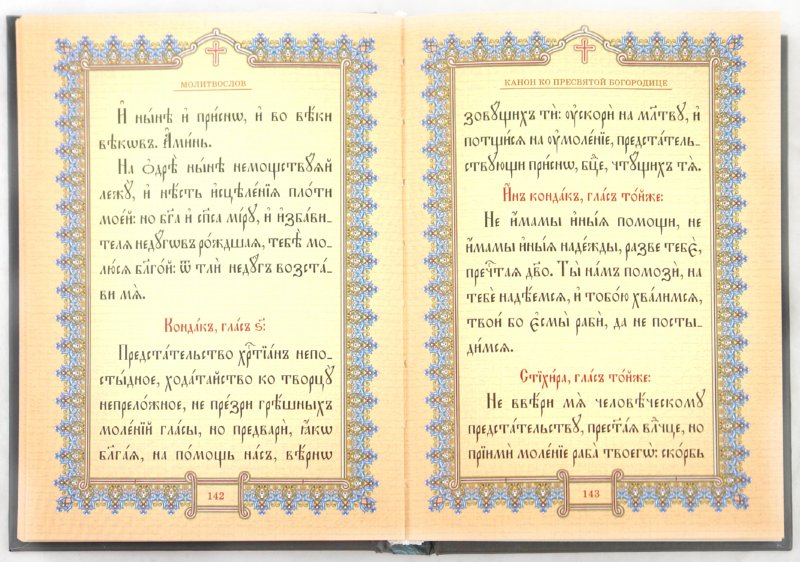 МОЛИТВОСЛОВ
И҆ ны́нѣ и҆ при́снѡ, и҆ во вѣ́ки
вѣкѡ́въ. А҆ми́нь.
На ѻ҆дрѣ̀ ны́нѣ немощствꙋ́ѧй
лежꙋ̀, и҆ нѣ́сть и҆сцѣле́нїѧ пло́ти
мое́й: но бг҃а и҆ сп҃са мі́рꙋ, и҆ и҆зба́ви-
телѧ недꙋ́гѡвъ ро́ждшаѧ, тебѣ̀ мо-
лю́сѧ бл҃го́й: ѿ тлѝ недꙋ́гъ возста́-
ви мѧ̀.
Конда́къ, гла́съ ѕ҃:
Предста́тельство хрⷭ҇тїа́нъ непо-
сты́дное, хода́тайство ко творцꙋ̀
непрело́жное, не пре́зри грѣ́шныхъ
моле́нїй гла́сы, но предварѝ, ꙗ҆́кѡ
бл҃га́ѧ, на по́мощь на́съ, вѣ́рнѡ
142
КАНОН КО ПРЕСВЯТОЙ БОГОРОДИЦЕ
зовꙋ́щихъ тѝ: ᲂу҆скорѝ на мл҃твꙋ, и҆
потщи́сѧ на ᲂу҆моле́нїе, предста́тель-
ствꙋющи при́снѡ, бцⷣе, чтꙋ́щихъ тѧ̀.
И҆́нъ конда́къ, гла́съ то́йже:
Не и҆́мамы и҆ны́ѧ по́мощи, не
и҆́мамы и҆ны́ѧ наде́жды, ра́зве тебє̀,
пречⷭ҇таѧ дв҃о. Ты̀ на́мъ помозѝ, на
тебѐ надѣ́емсѧ, и҆ тобо́ю хва́лимсѧ,
твоѝ бо є҆смы̀ рабѝ, да не посты-
ди́мсѧ.
Стїхи́ра, гла́съ то́йже:
Не ввѣ́ри мѧ̀ человѣ́ческомꙋ
предста́тельствꙋ, прест҃а́ѧ влⷣчце, но
прїимѝ моле́нїе раба̀ твоегѡ̀: ско́рбь
143